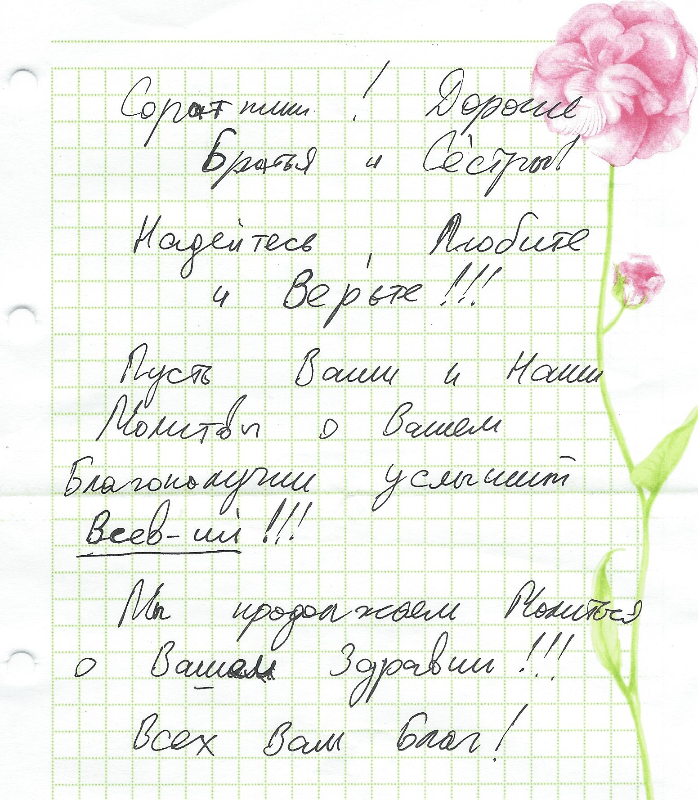 Соратники! Дорогие
Братья и Сёстры!
Надейтесь, Любите
и Верьте!!!
Пусть Ваши и Наши
Молитвы о Вашем
Благополучии услышит
Всев-ий!!!
Мы продолжаем Молиться
о Вашем Здравии!!!
Всех Вам Благ!